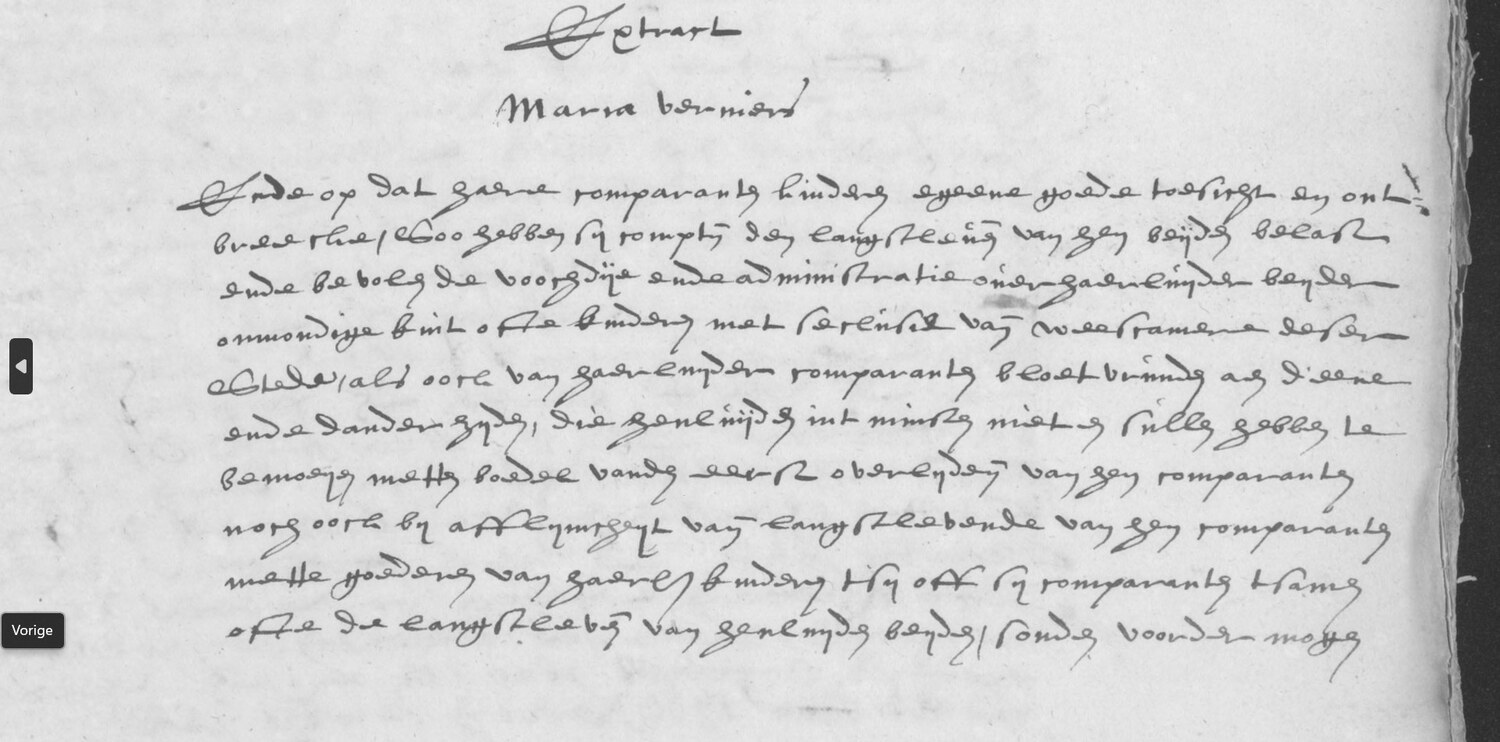 Extract
Maria verniers
Ende op dat haere comparanten kinderen egeene goede toesicht en ont-
breecke, Soo hebben sij comptn den langstleven van hen beijden belast
ende bevolen de voochdije ende administratie over haerluijder beijder
onmondige kint ofte kinderen met seclusie van weescamere deser
Stede, als oock van haerluijder comparanten bloetvrunden aen d'eene
ende dander zijden, die henluijden int minsten niet en sullen hebben te
bemoeijen metten boedel vanden eerst overlijden van hen comparanten
noch oock bij afflijvicheijt van langstlevende van hen comparanten
mette goederen van haerl kinderen tsij off sij comparanten tsamen
ofte de langstleven van henluijden beijden, sonden voorder mogen
Vorige